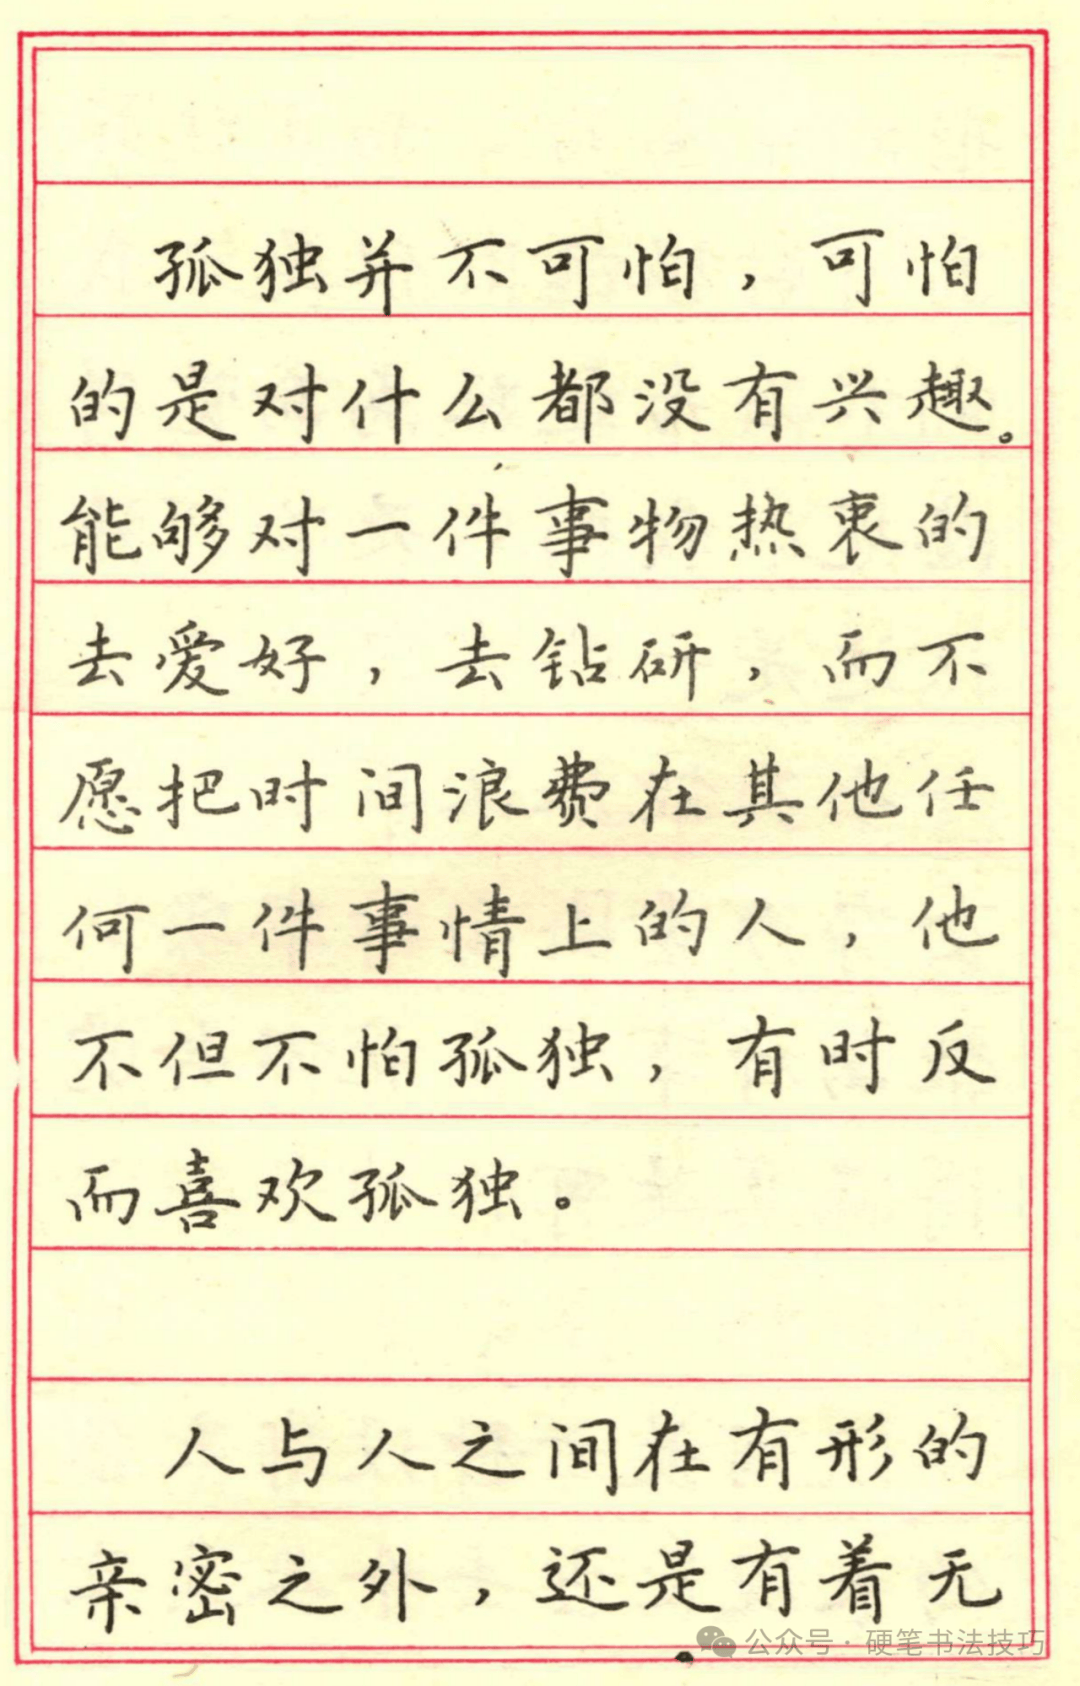 孤独并不可怕，可怕
的是对什么都没有兴趣。
能够对一件事物热衷的
去爱好，去钻研，而不
愿把时间浪费在其他任
何一件事情上的人，他
不但不怕孤独，有时反
而喜欢孤独。
人与人之间在有形的
亲密之外，还是有着无
公众号·硬笔书法技巧